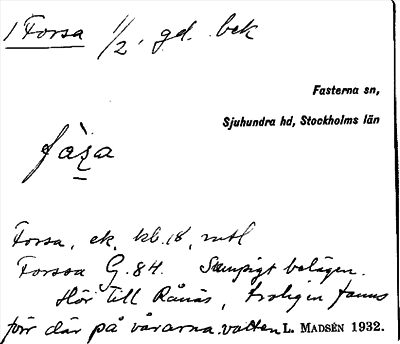 1 Forsa 1/2, gd. bek
Fasterna sn,
Sjuhundra hd, Stockholms län
Forsa, ek. kb. 18, mtl
Forssa G. 84. Sumpigt belägen.
Hör till Rånäs, troligen fanns
förr där på vårarna vatten L. MADSÉN 1932.